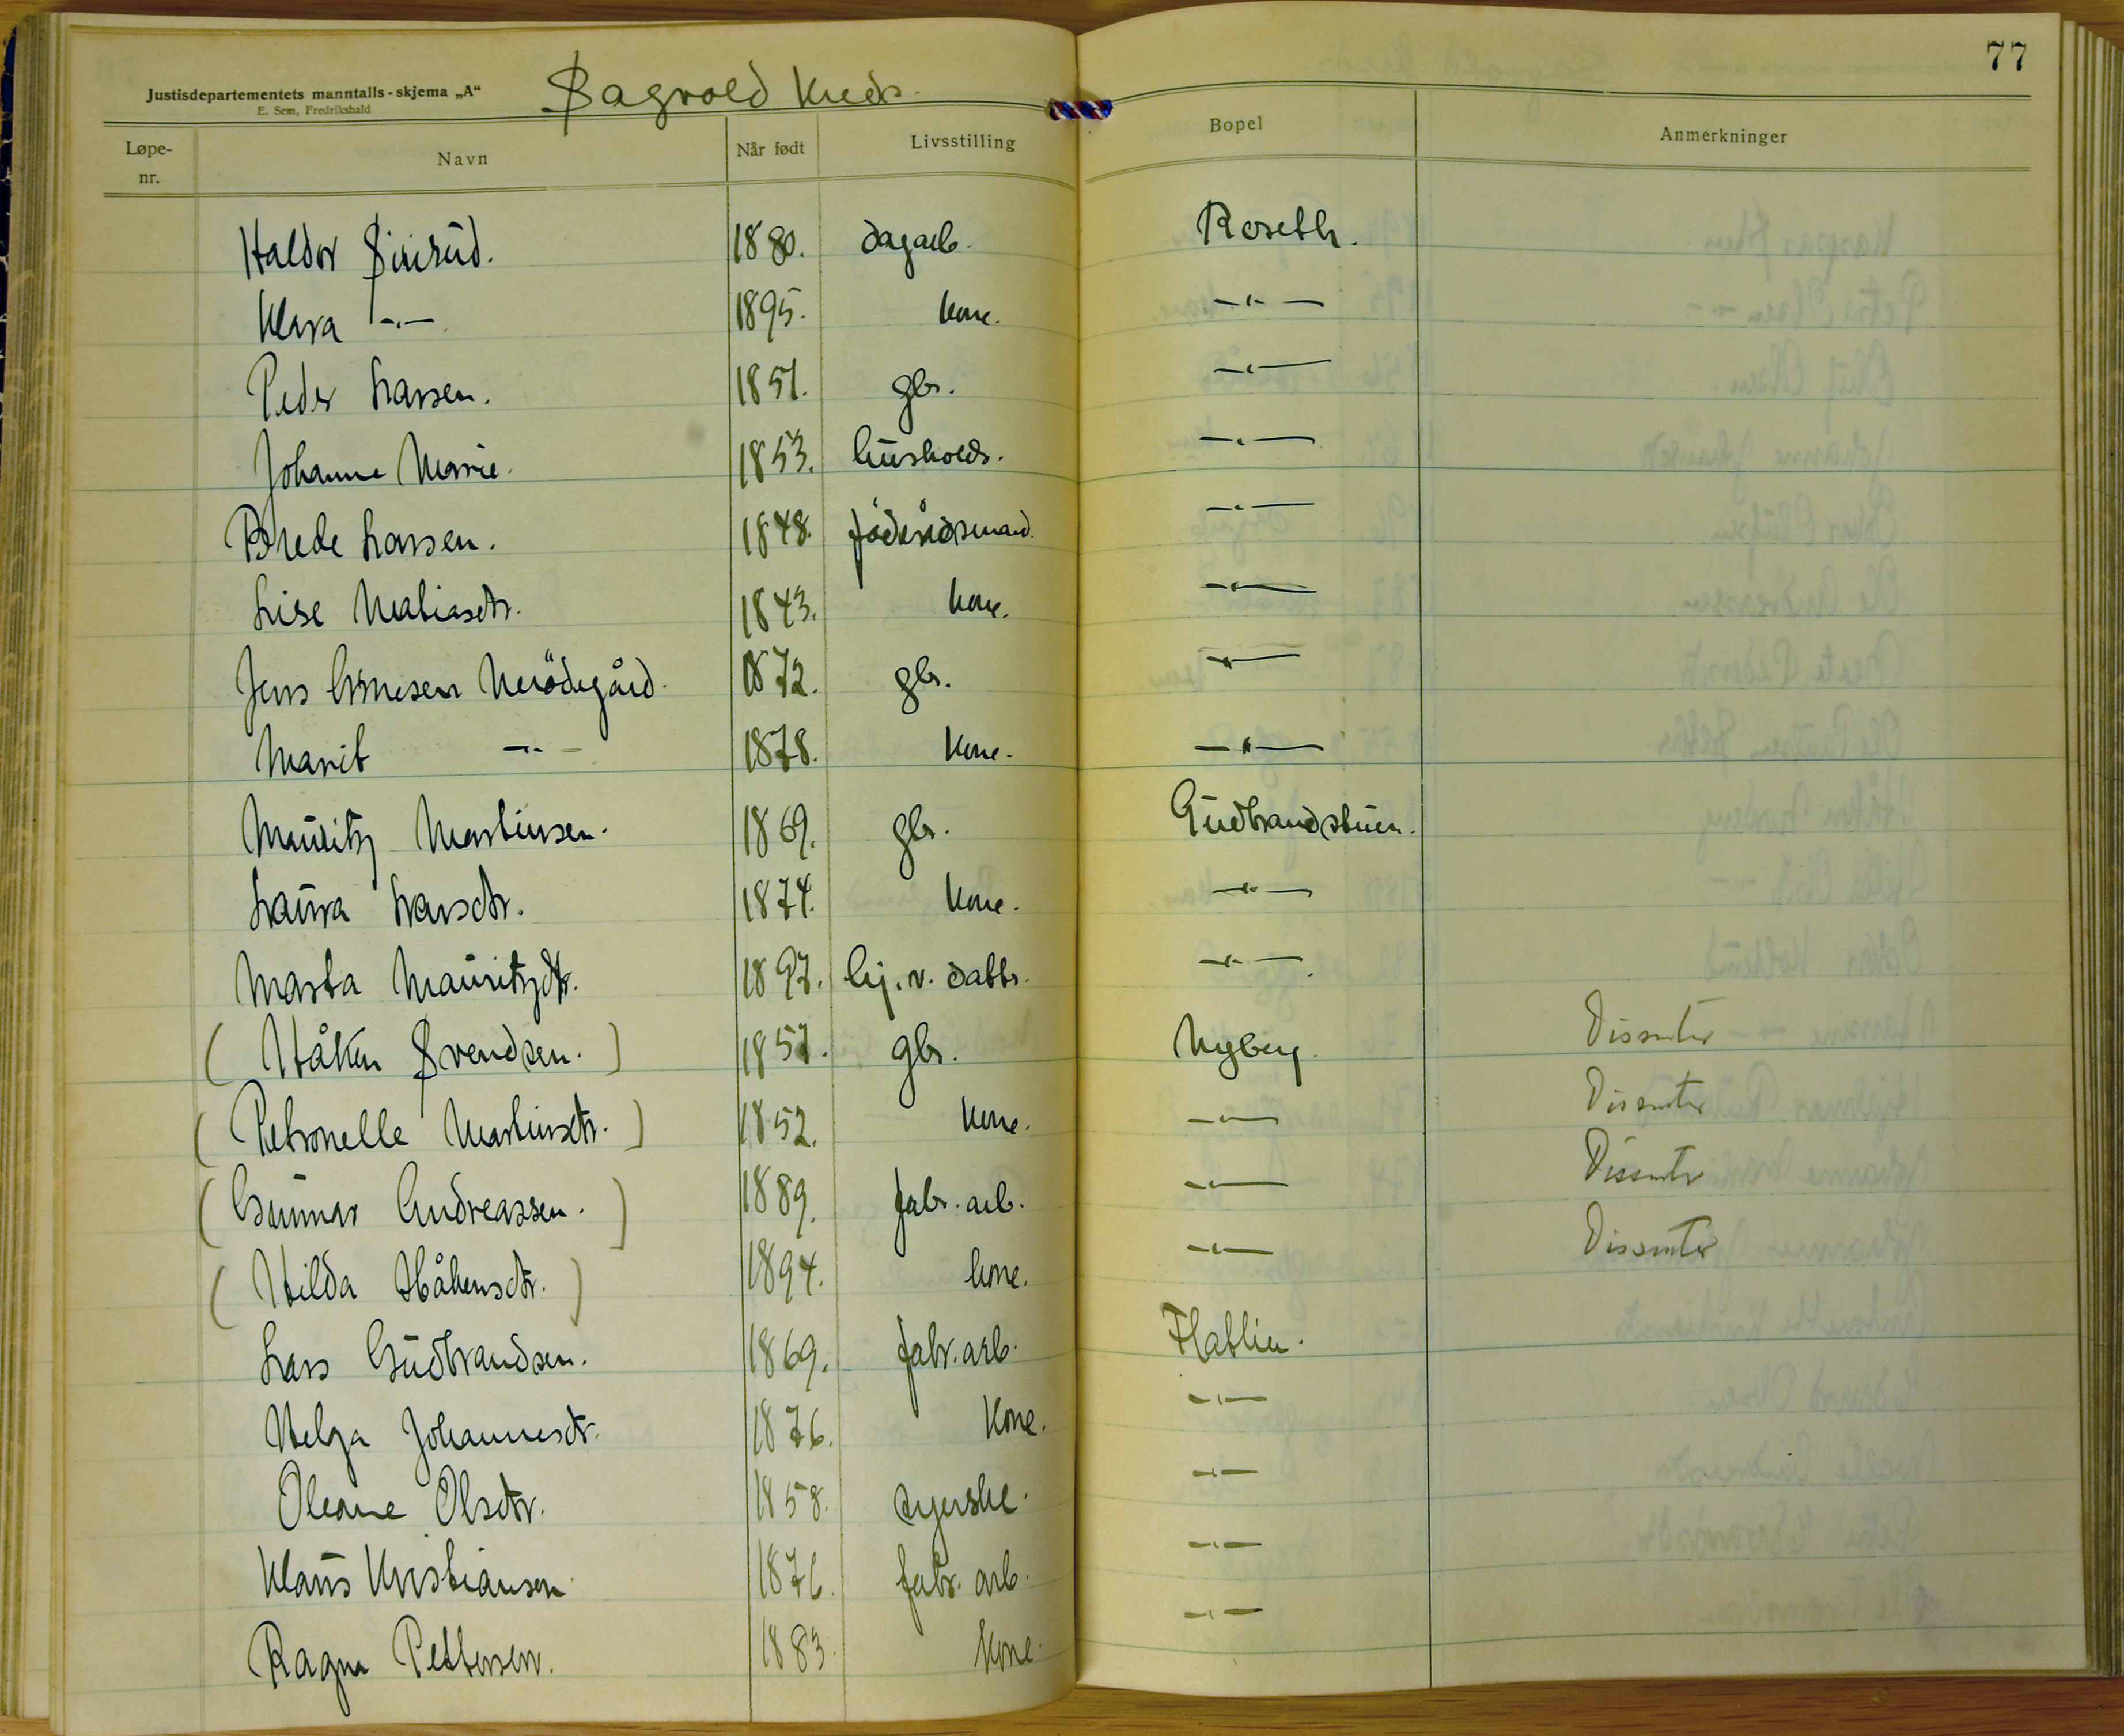 77
Justisdepartementets manntalls-skjema „A“
E. Sem, Fredrikshald
Sagvold Kreds.
Løpe-nr. Navn Når født Livsstilling Bopel Anmerkninger
Haldor Sinirud. 1880. dagarb. Roseth.
Klara -"- 1895. kone. -"-
Peder Larsen. 1851. gbr. -"-
Johanne Marie. 1853. hüsholds. -"-
Brede Larsen. 1848. föderådsmand -"-
Lise Matiasdtr. 1843. kone. -"-
Jens Arnesen Nerödegård. 1872. gbr. -"-
Marit -"- 1878. kone. -"-
Mauritz Martinsen. 1869. gbr. Güdbrandstuen.
Laüra Larsdtr. 1874. kone. -"-
Marta Maüritzdtr. 1897. hj. v. datter. -"-
( Håken Svendsen. ) 1857. gbr. Nyberg. Dissenter
( Petronelle Martinsdtr. ) 1852. kone. -"- Dissenter
( Günnar Andreassen. ) 1889. fabr. arb. -"- Dissenter
( Hilda Håkensdtr. ) 1894. kone. -"- Dissenter
Lars Güdbrandsen. 1869. fabr. arb. Flatlien.
Helga Johannesdtr. 1876. Kone. -"-
Oleane Olsdtr. 1858. syerske. -"-
Klaüs Kristiansen 1876. fabr. arb. -"-
Ragna Pettersen. 1883. kone. -"-